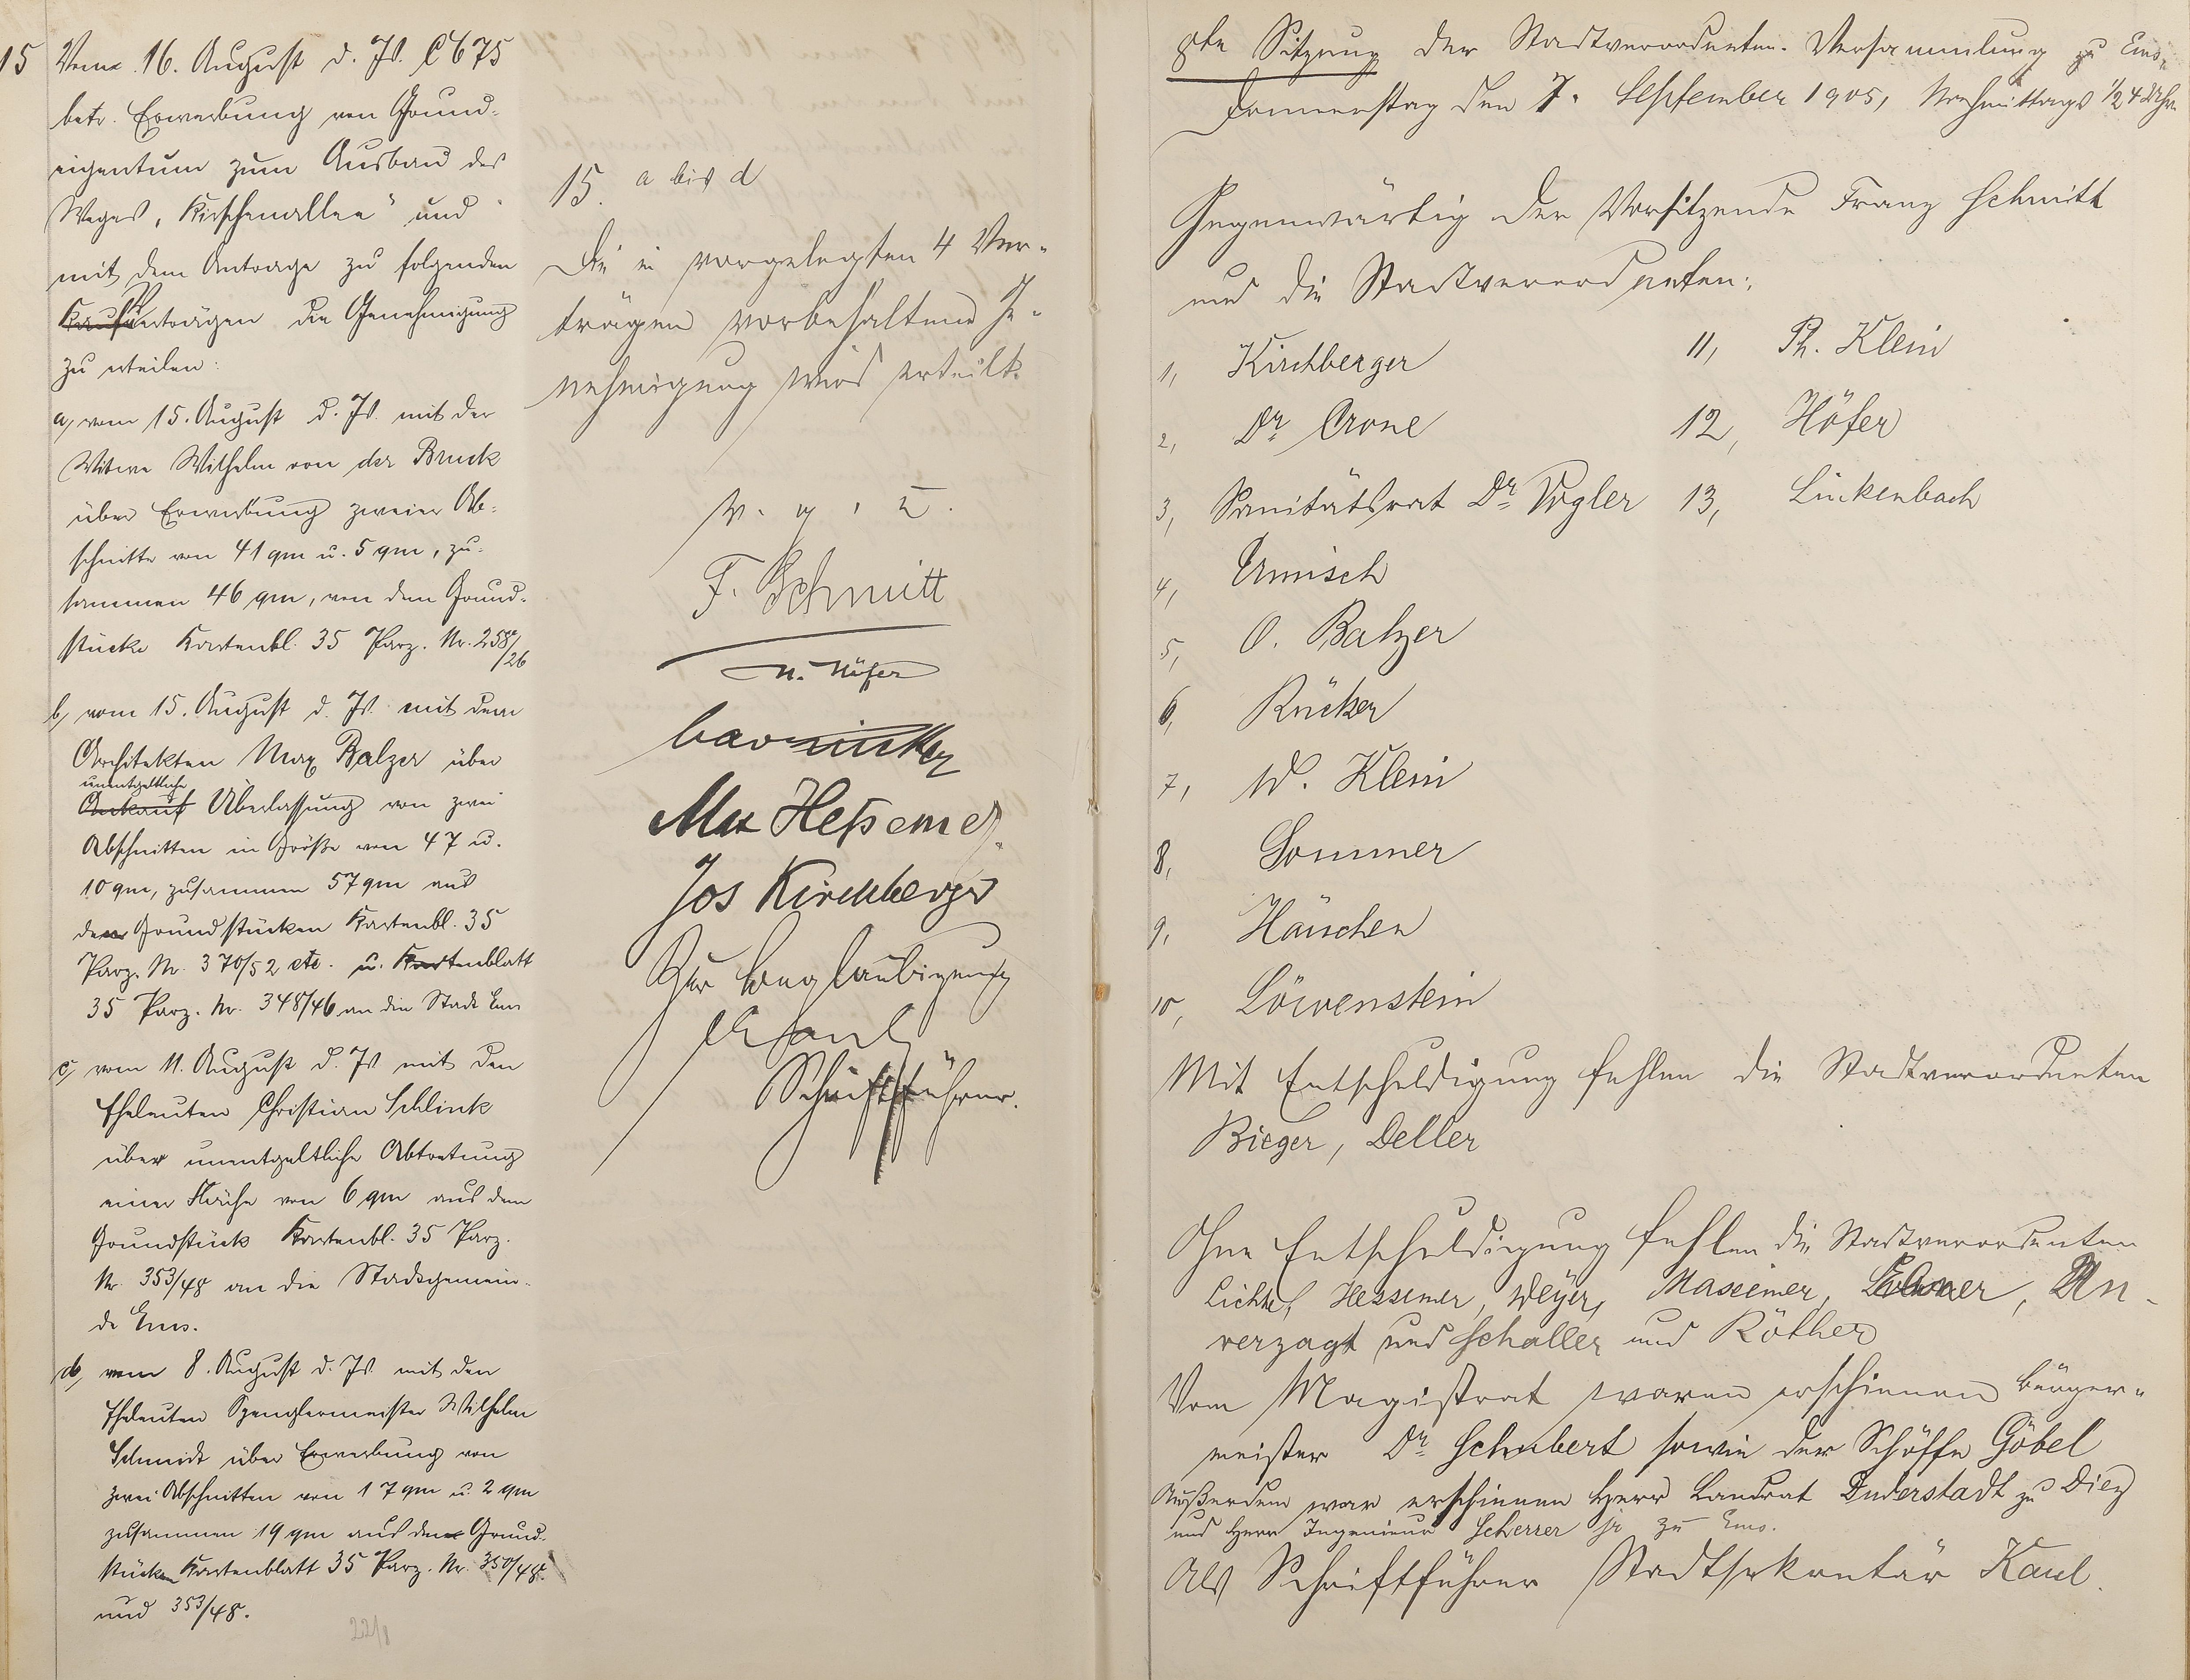 15 Vom 16. August d. Js. C 675
betr. Erwerbung von Grund-
eigentum zum Ausbau des
Weges „Kirschenallee" und
mit dem Antrage zu folgenden
Kaufverträgen die Genehmigung
zu erteilen:
a, vom 15. August d. Js. mit der
Witwe Wilhelm von der Bruck
über Erwerbung zweier Ab-
schnitte von 41 qm u. 5 qm, zu-
sammen 46 qm, von dem Grund-
stücke Kartenbl. 35 Parz. Nr. 258/
/26
b, vom 15. August d. Js. mit dem
Architekten Max Balzer über
unentgeltliche
Ankauf Überlassung von zwei
Abschnitten in Größe von 47 u.
10 qm, zusammen 57 qm aus
den Grundstücken Kartenbl. 35
Parz. Nr. 370/52 etc. u. Kartenblatt
35 Parz. Nr. 348/46 an die Stadt Ems
c, vom 11. August d. Js. mit den
Eheleuten Christian Schlink
über unentgeltliche Abtretung
einer Fläche von 6 qm aus dem
Grundstück Kartenbl. 35 Parz.
Nr. 353/48 an die Stadtgemein-
de Ems.
d, vom 8. August d. Js. mit den
Eheleuten Spenglermeister Wilhelm
Schmidt über Erwerbung von
zwei Abschnitten von 17 qm u. 2 qm
zusammen 19 qm aus dem Grund-
stücken Kartenblatt 35 Parz. Nr. 350/48
und 353/48.
22/8
15. a bis d
Die in vorgelegten 4 Ver-
trägen vorbehaltene Ge-
nehmigung wird erteilt.
v. g. u.
F. Schmitt
N. Höfer
Max Heßemer.
Jos Kirchberger
Zur Beglaubigung
Kaul
Schriftführer.
8te Sitzung der Stadtverordneten-Versammlung zu Ems,
Donnerstag den 7. September 1905, Nachmittags 1/2 4 Uhr.
Gegenwärtig der Vorsitzende Franz Schmitt
und die Stadtverordneten:
1, Kirchberger
2, Dr Crone
3, Sanitätsrat Dr Vogler
4, Ermisch
5, O. Balzer
6, Rücker
7, W. Klein
8, Sommer
9, Häuschen
10, Löwenstein
11, Ph. Klein
12, Höfer
13, Linkenbach
Mit Entschuldigung fehlen die Stadtverordneten
Bieger, Deller
Ohne Entschuldigung fehlen die Stadtverordneten
Lichtel, Hessemer, Weyer, Maxeiner, Un-
verzagt und Schaller und Röther
Vom Magistrat waren erschienen Bürger-
meister Dr Schubert sowie der Schöffe Göbel
Außerdem war erschienen Herr Landrat Duderstadt zu Diez
und Herr Ingenieur Scherrer jr zu Ems.
Als Schriftführer Stadtsekretär Kaul.